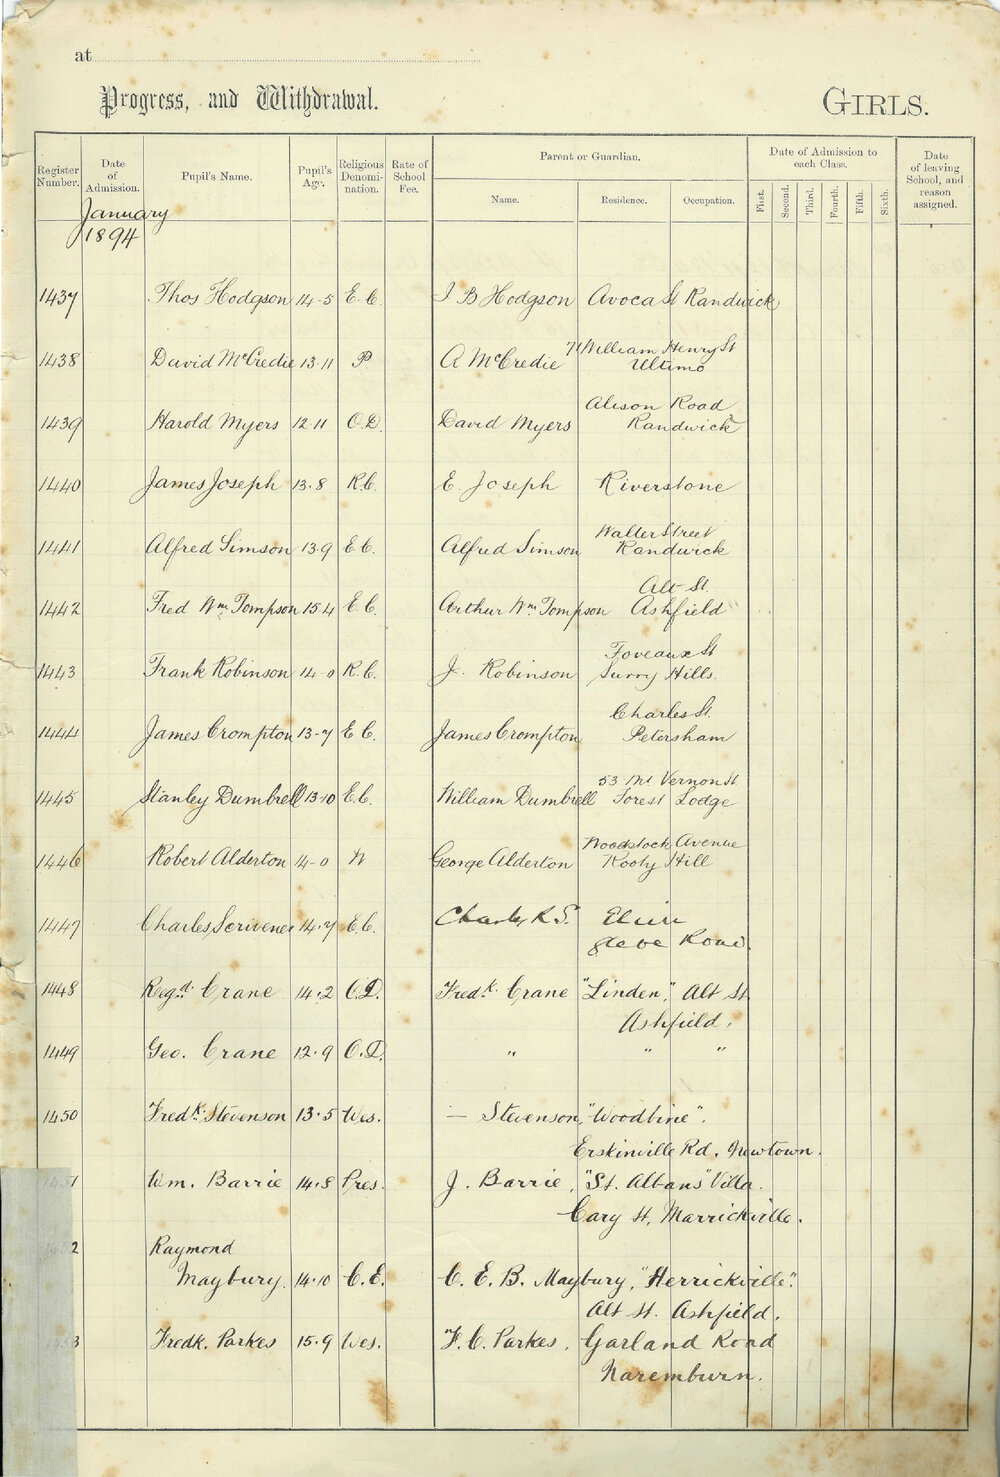 at
Progress, and Withdrawal.
GIRLS.
Register Number.
Date of Admission.
Pupil's Name.
Pupil's Age.
Religious Denomi-nation.
Rate of School Fee.
Parent or Guardian.
Name.
Residence.
Occupation.
Date of Admission to each Class.
First.
Second.
Third.
Fourth.
Fifth.
Sixth.
Date of leaving School, and reason assigned.
January
1894
1437 Thos Hodgson 14-5 E. C. J B Hodgson Avoca St Randwick
1438 David McCredie 13-11 P. A McCredie William Henry St
Ultimo
Alison Road
1439 Harold Myers 12-11 O.D. David Myers Randwick
1440 James Joseph 13-8 R.C. E. Joseph Riverstone
Walter Street
1441 Alfred Simson 13-9 E. C. Alfred Simson Randwick
Alt St.
1442 Fred Wm Tompson 15-4 E. C. Arthur Wm Tompson Ashfield
Foveaux St
1443 Frank Robinson 14-0 R. C. J. Robinson Surry Hills.
Charles St.
1444 James Crompton 13-7 E C. James Crompton Petersham
53 Mt Vernon St
1445 Stanley Dumbrell 13-10 E. C. William Dumbrell Forest Lodge
Woodstock Avenue
1446 Robert Alderton 14-0 W George Alderton Rooty Hill
1447 Charles Scrivener 14-7 E. C. Charles K. S.
Glebe Road.
1448 Regd. Crane 14.2 O.D. Fredk. Crane "Linden", Alt St
Ashfield.
1449 Geo. Crane 12.9 O.D. " " "
1450 Fredk. Stevenson 13.5 Wes. — Stevenson, "Woodbine".
Erskinville Rd. Newtown.
1451 Wm. Barrie 14.8 Pres. J. Barrie, "St. Albans" Villa.
Cary St, Marrickville.
Raymond
1452 Maybury. 14.10 C. E. C. E. B. Maybury, "Herrickville".
Alt St. Ashfield.
1453 Fredk. Parkes 15.9 Wes. F. C. Parkes. Garland Road
Naremburn.